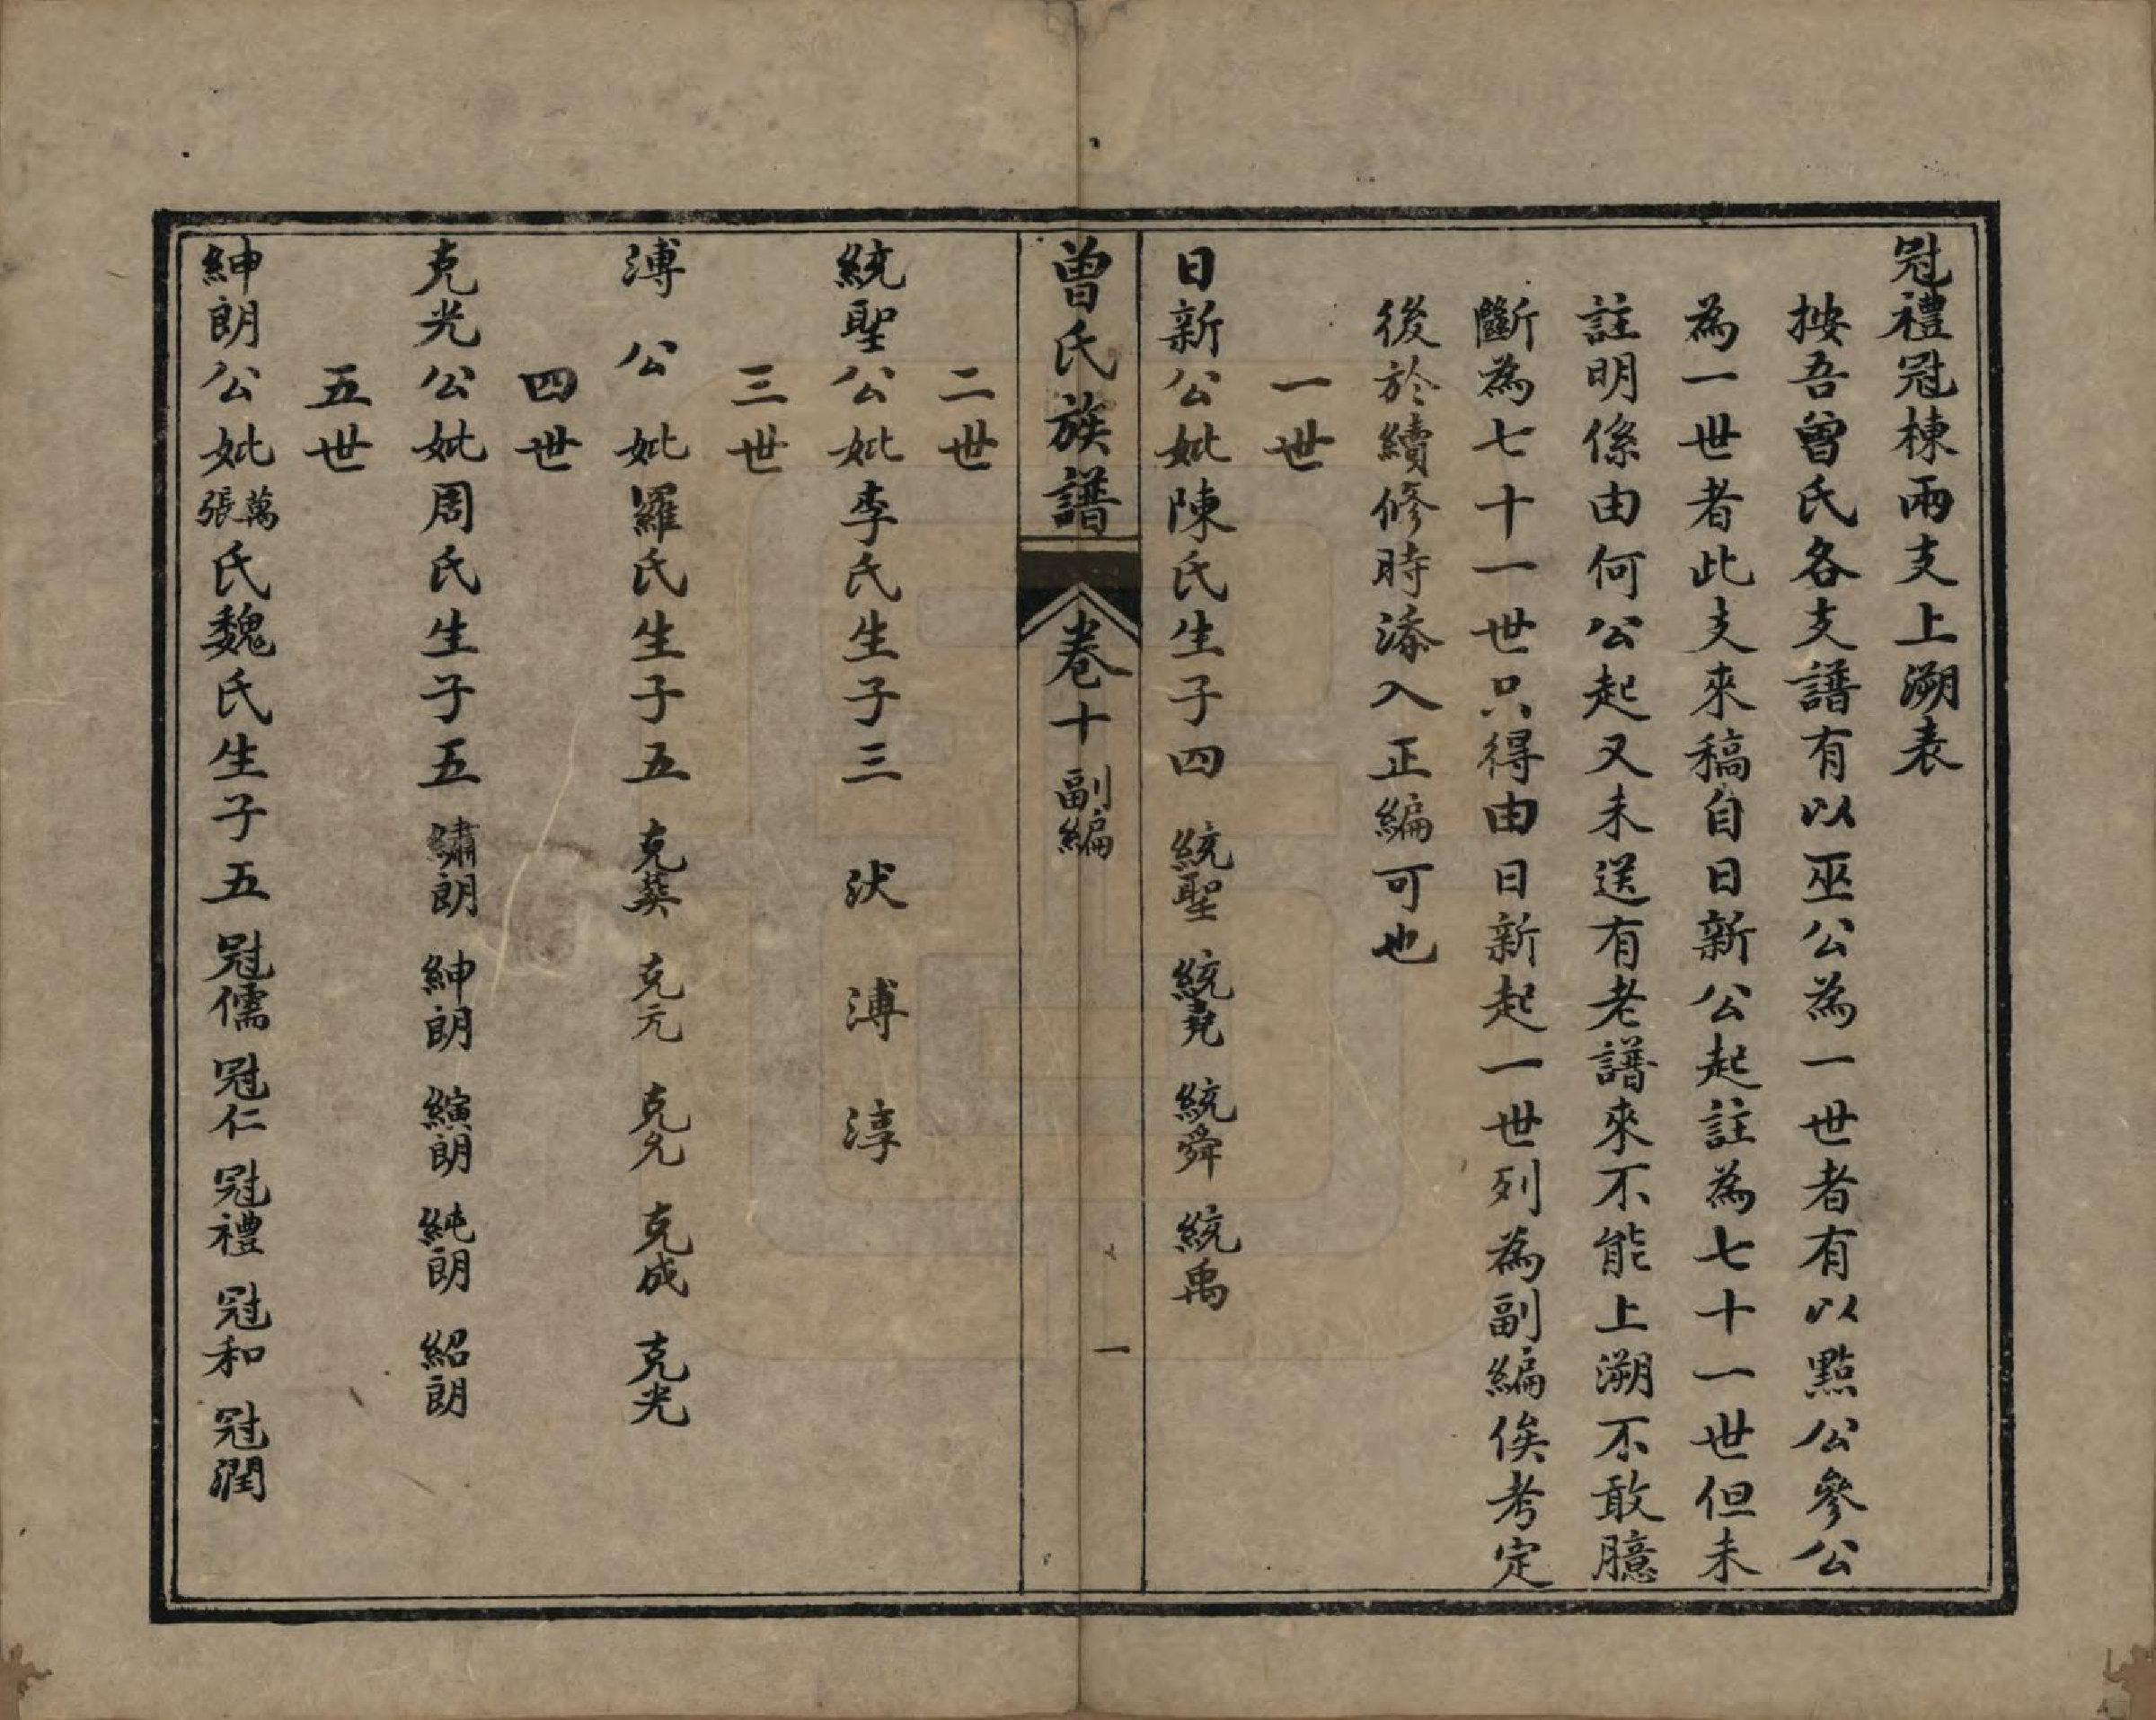 冠禮冠棟兩支上溯表
按吾曾氏各支譜有以巫公為一世者有以點公參公
為一世者此支來稿自日新公起註為七十一世但未
註明係由何公起又未送有老譜來不能上溯不敢臆
斷為七十一世只得由日新起一世列為副編俟考定
後於續修時添入正編可也
一世
日新公妣陳氏生子四 統聖 統堯 統舜 統禹
曾氏族譜 卷十 副編 一
二世
統聖公妣李氏生子三 洑 溥 淳
三世
溥公妣羅氏生子五 克葵 克元 克允 克成 克光
四世
克光公妣周氏生子五 繡朗 紳朗 縯朗 純朗 紹朗
五世
紳朗公妣萬張氏魏氏生子五 冠儒 冠仁 冠禮 冠和 冠潤